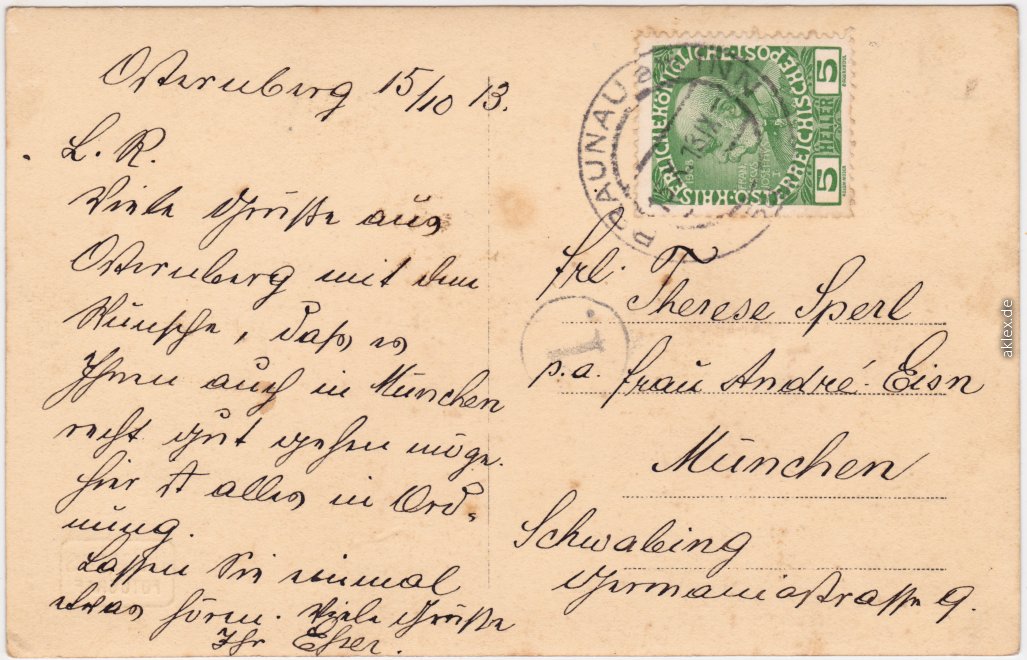 Osternberg 15/10 13.
L. R.
Viele Grüße aus
Osternberg mit dem
Wunsche, daß es
Ihnen auch in München
recht gut gehen möge.
Hier ist alles in Ord-
nung.
Lassen Sie einmal
etwas hören. Viele Grüße
Ihr
BRAUNAU a. INN
13 IX
KAISERLICHE KÖNIGLICHE ÖSTERREICHISCHE POST
5 HELLER 5
1.
Frl. Therese Sperl
p.a. Frau André Eisn
München
Schwabing
Germaniastrasse 9.
aklex.de